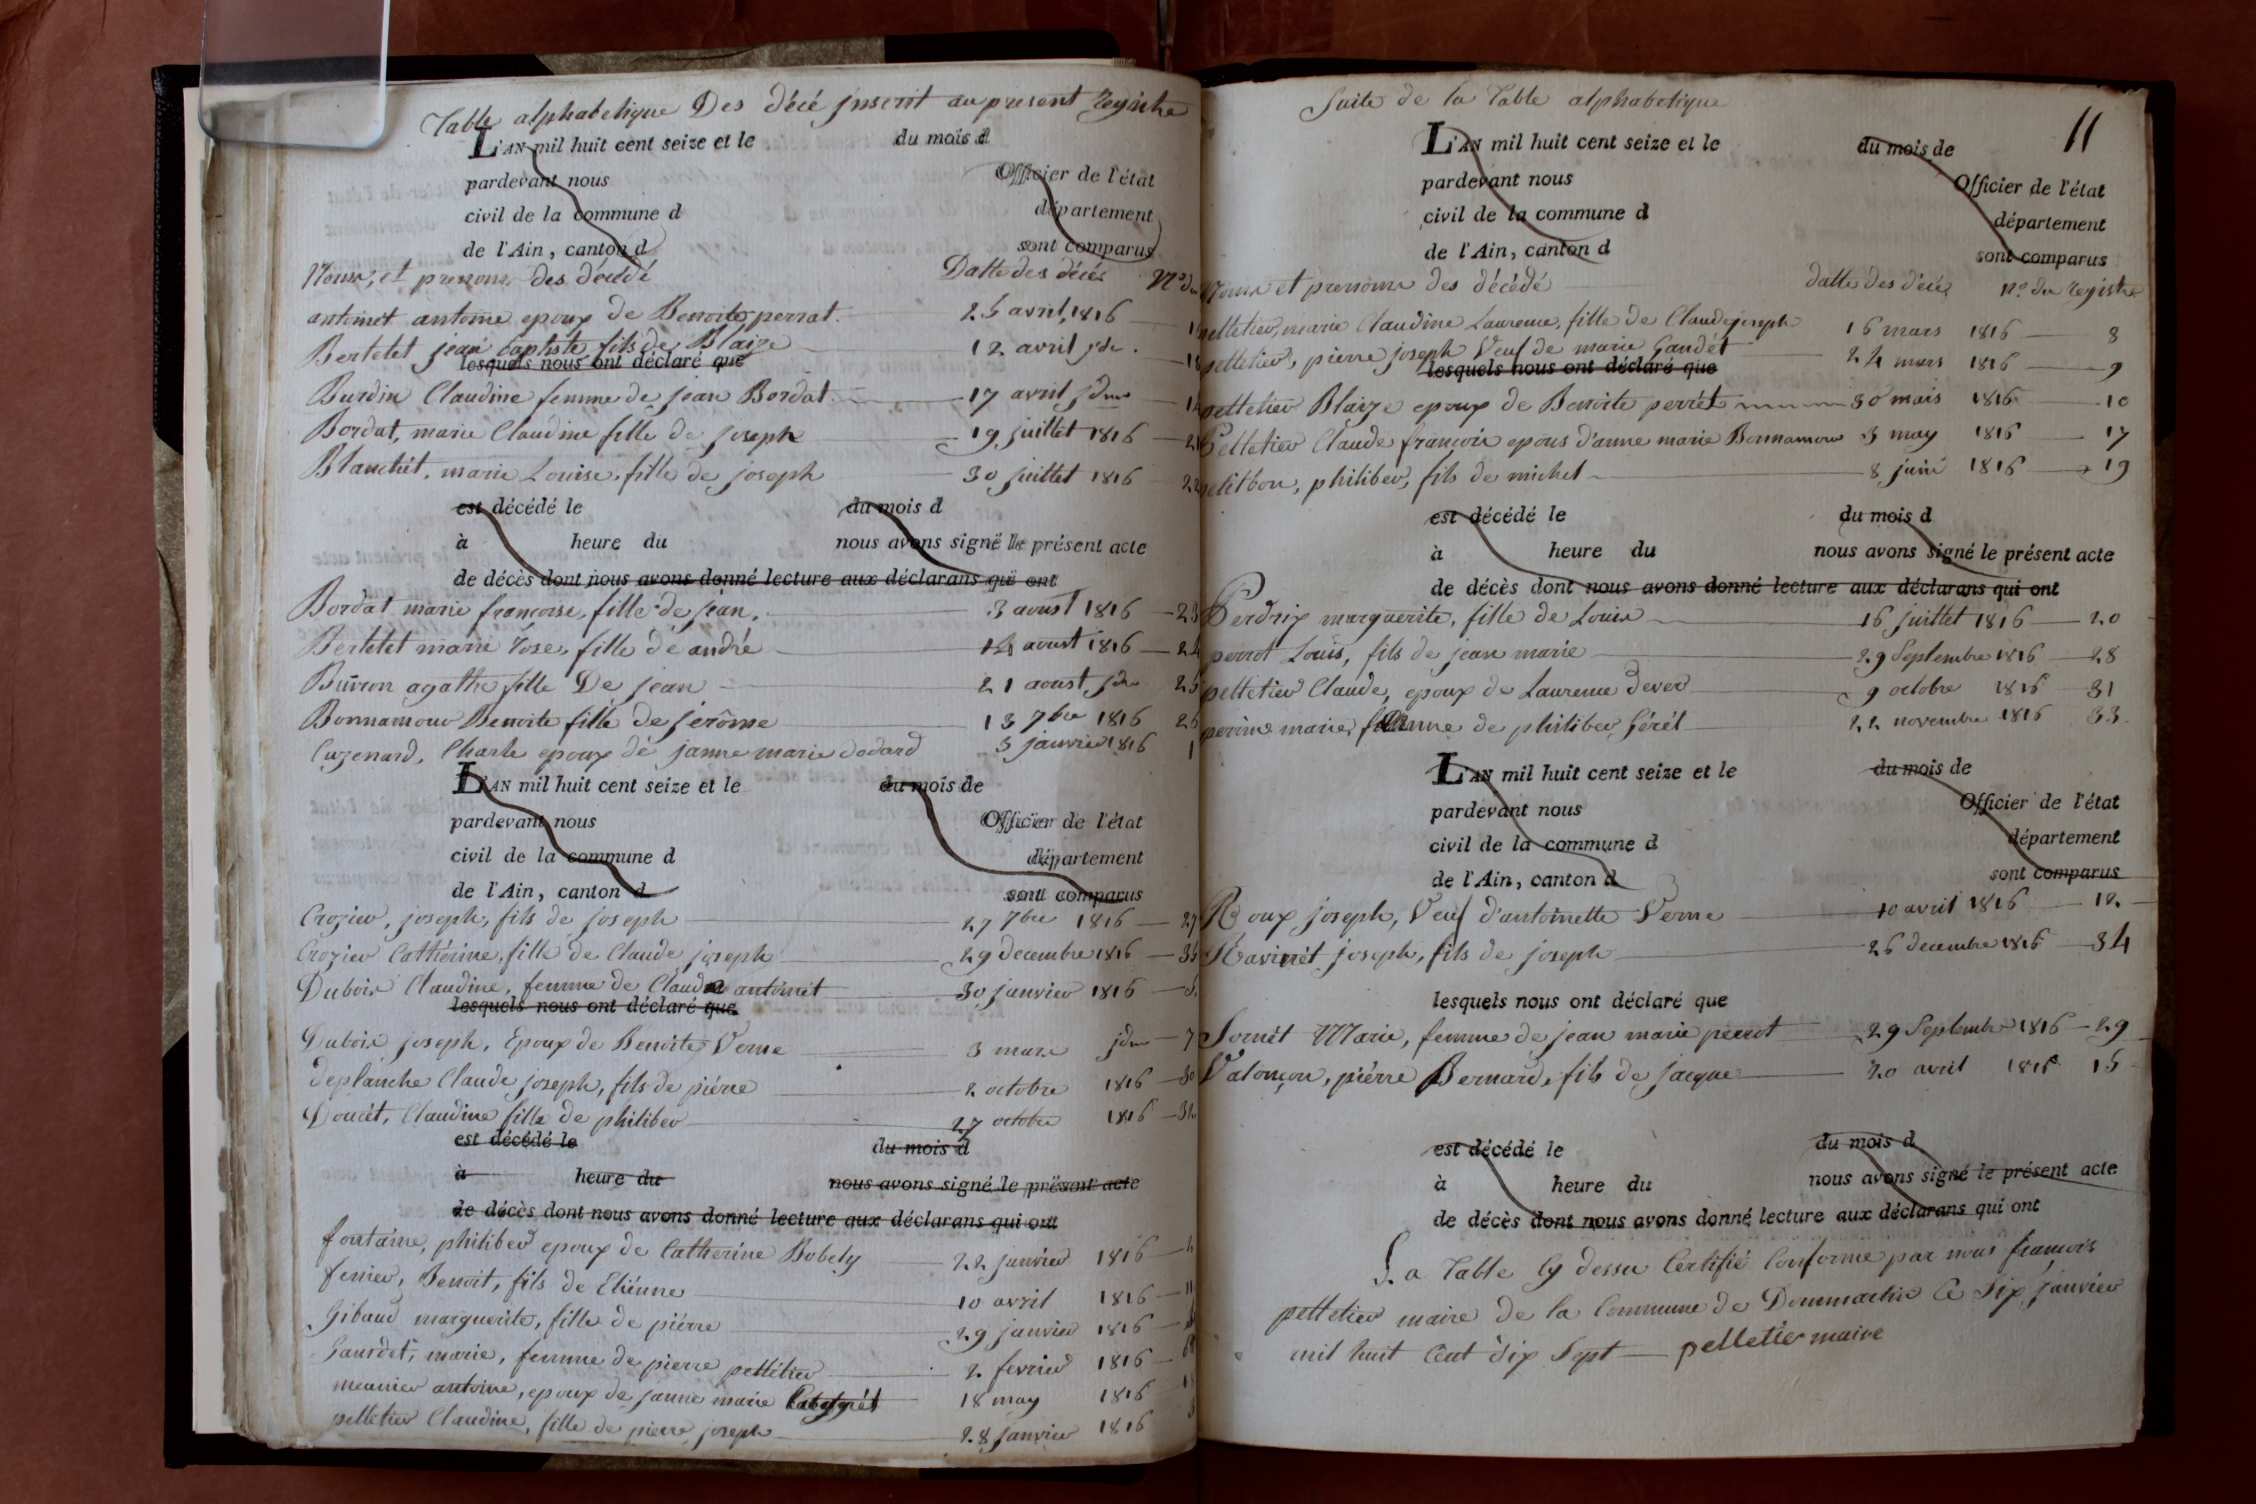 Table alphabetique Des décé jnscrit au present Registre
L'AN mil huit cent seize et le du mois d
pardevant nous Officier de l'état
civil de la commune d département
de l'Ain, canton d sont comparus
Noms, et prenoms des décédé Datte des décés N° du
antoinet antoine epoux de Benoite perrat 25 avril 1816
Bertetet jean baptiste fils de Blaize 12 avril jdm 13
lesquels nous ont déclaré que
Burdin Claudine femme de jean Bordat 17 avril jdm 14
Bordat, marie Claudine fille de joseph 19 juillet 1816 21
Blanchet, marie Louise, fille de joseph 30 juillet 1816 22
est décédé le du mois d
à heure du nous avons signé le présent acte
de décès dont nous avons donné lecture aux déclarans qui ont
Bordat marie françoise, fille de jean, 3 aoust 1816 23
Bertetet marie rose, fille de andré 14 aoust 1816 24
Buiron agathe fille De jean 21 aoust jdm 25
Bonnamour Benoite fille de jerôme 13 7bre 1816 26
Cuzenard, Charle epoux de janne marie dodard 3 janvier 1816 1
L'AN mil huit cent seize et le du mois de
pardevant nous Officier de l'état
civil de la commune d département
de l'Ain, canton d sont comparus
Crozier, joseph, fils de joseph 27 7bre 1816 27
Crozier Cathérine, fille de Claude joseph 29 decembre 1816 35
Dubois Claudine, femme de Claude antoinet 30 janvier 1816 5
lesquels nous ont déclaré que
Dubois joseph, Epoux de Benoite Verne 3 mars jdm 7
deplanche Claude joseph, fils de piérre 2 octobre 1816 30
Doucet, Claudine fille de philiber 27 octobre 1816 32
est décédé le du mois d
à heure du nous avons signé le présent acte
de décès dont nous avons donné lecture aux déclarans qui ont
fontaine, philiber epoux de Catherine Bobely 22 janvier 1816
ferrier, Benoit, fils de Etiénne 10 avril 1816 11
Gibaud marguerite, fille de piérre 29 janvier 1816
Gaurdet, marie, femme de pierre pelletier 2 fevrier 1816
meunier antoine, epoux de janne marie 18 may 1816
pelletier Claudine, fille de pierre joseph 28 janvier 1816
Suite de la Table alphabetique
11
L'AN mil huit cent seize et le du mois de
pardevant nous Officier de l'état
civil de la commune d département
de l'Ain, canton d sont comparus
Noms et prenoms des décédé datte des décés n° du registre
pelletier, marie Claudine Laurence, fille de Claude joseph 16 mars 1816 8
pelletier, pierre joseph Veuf de marie Gaudet 24 mars 1816 9
lesquels nous ont déclaré que
pelletier Blaize epoux de Benoite perret 30 mars 1816 10
Pelletier Claude françois epous d'anne marie Bonnamour 3 may 1816 17
petitbon, philiber, fils de michel 8 juin 1816 19
est décédé le du mois d
à heure du nous avons signé le présent acte
de décès dont nous avons donné lecture aux déclarans qui ont
Perdrix marguerite, fille de Louis 16 juillet 1816 20
perrot Louis, fils de jean marie 29 Septembre 1816 28
pelletier Claude, epoux de Laurence dever 9 octobre 1816 31
perrin marie, femme de philiber Gérét 22 novembre 1816 33
L'AN mil huit cent seize et le du mois de
pardevant nous Officier de l'état
civil de la commune d département
de l'Ain, canton d sont comparus
Roux joseph, Veuf d'antoinette Verne 10 avril 1816 12
Ravinet joseph, fils de joseph 26 decembre 1816 34
lesquels nous ont déclaré que
Sornet Marie, femme de jean marie perrot 29 Septembre 1816 29
Valonçon, piérre Bernard, fils de jacque 20 avril 1816 15
est décédé le du mois d
à heure du nous avons signé le présent acte
de décès dont nous avons donné lecture aux déclarans qui ont
La Table Cy dessu Certifié Conforme par nous françois
pelletier maire de la Commune de Dommartin Ce Six janvier
mil huit Cent dix Sept pelletier maire